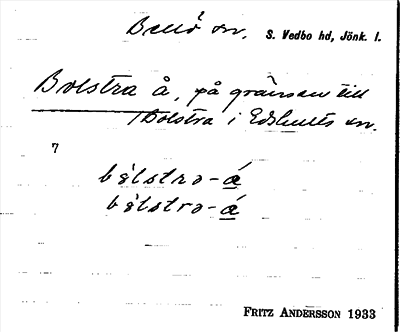 Bellö sn. S. Vedbo hd, Jönk. l.
Bolstra å, på gränsen till
Bolstra i Edshults sn.
7
bòlstra-á
bòlstro-á
FRITZ ANDERSSON 1933